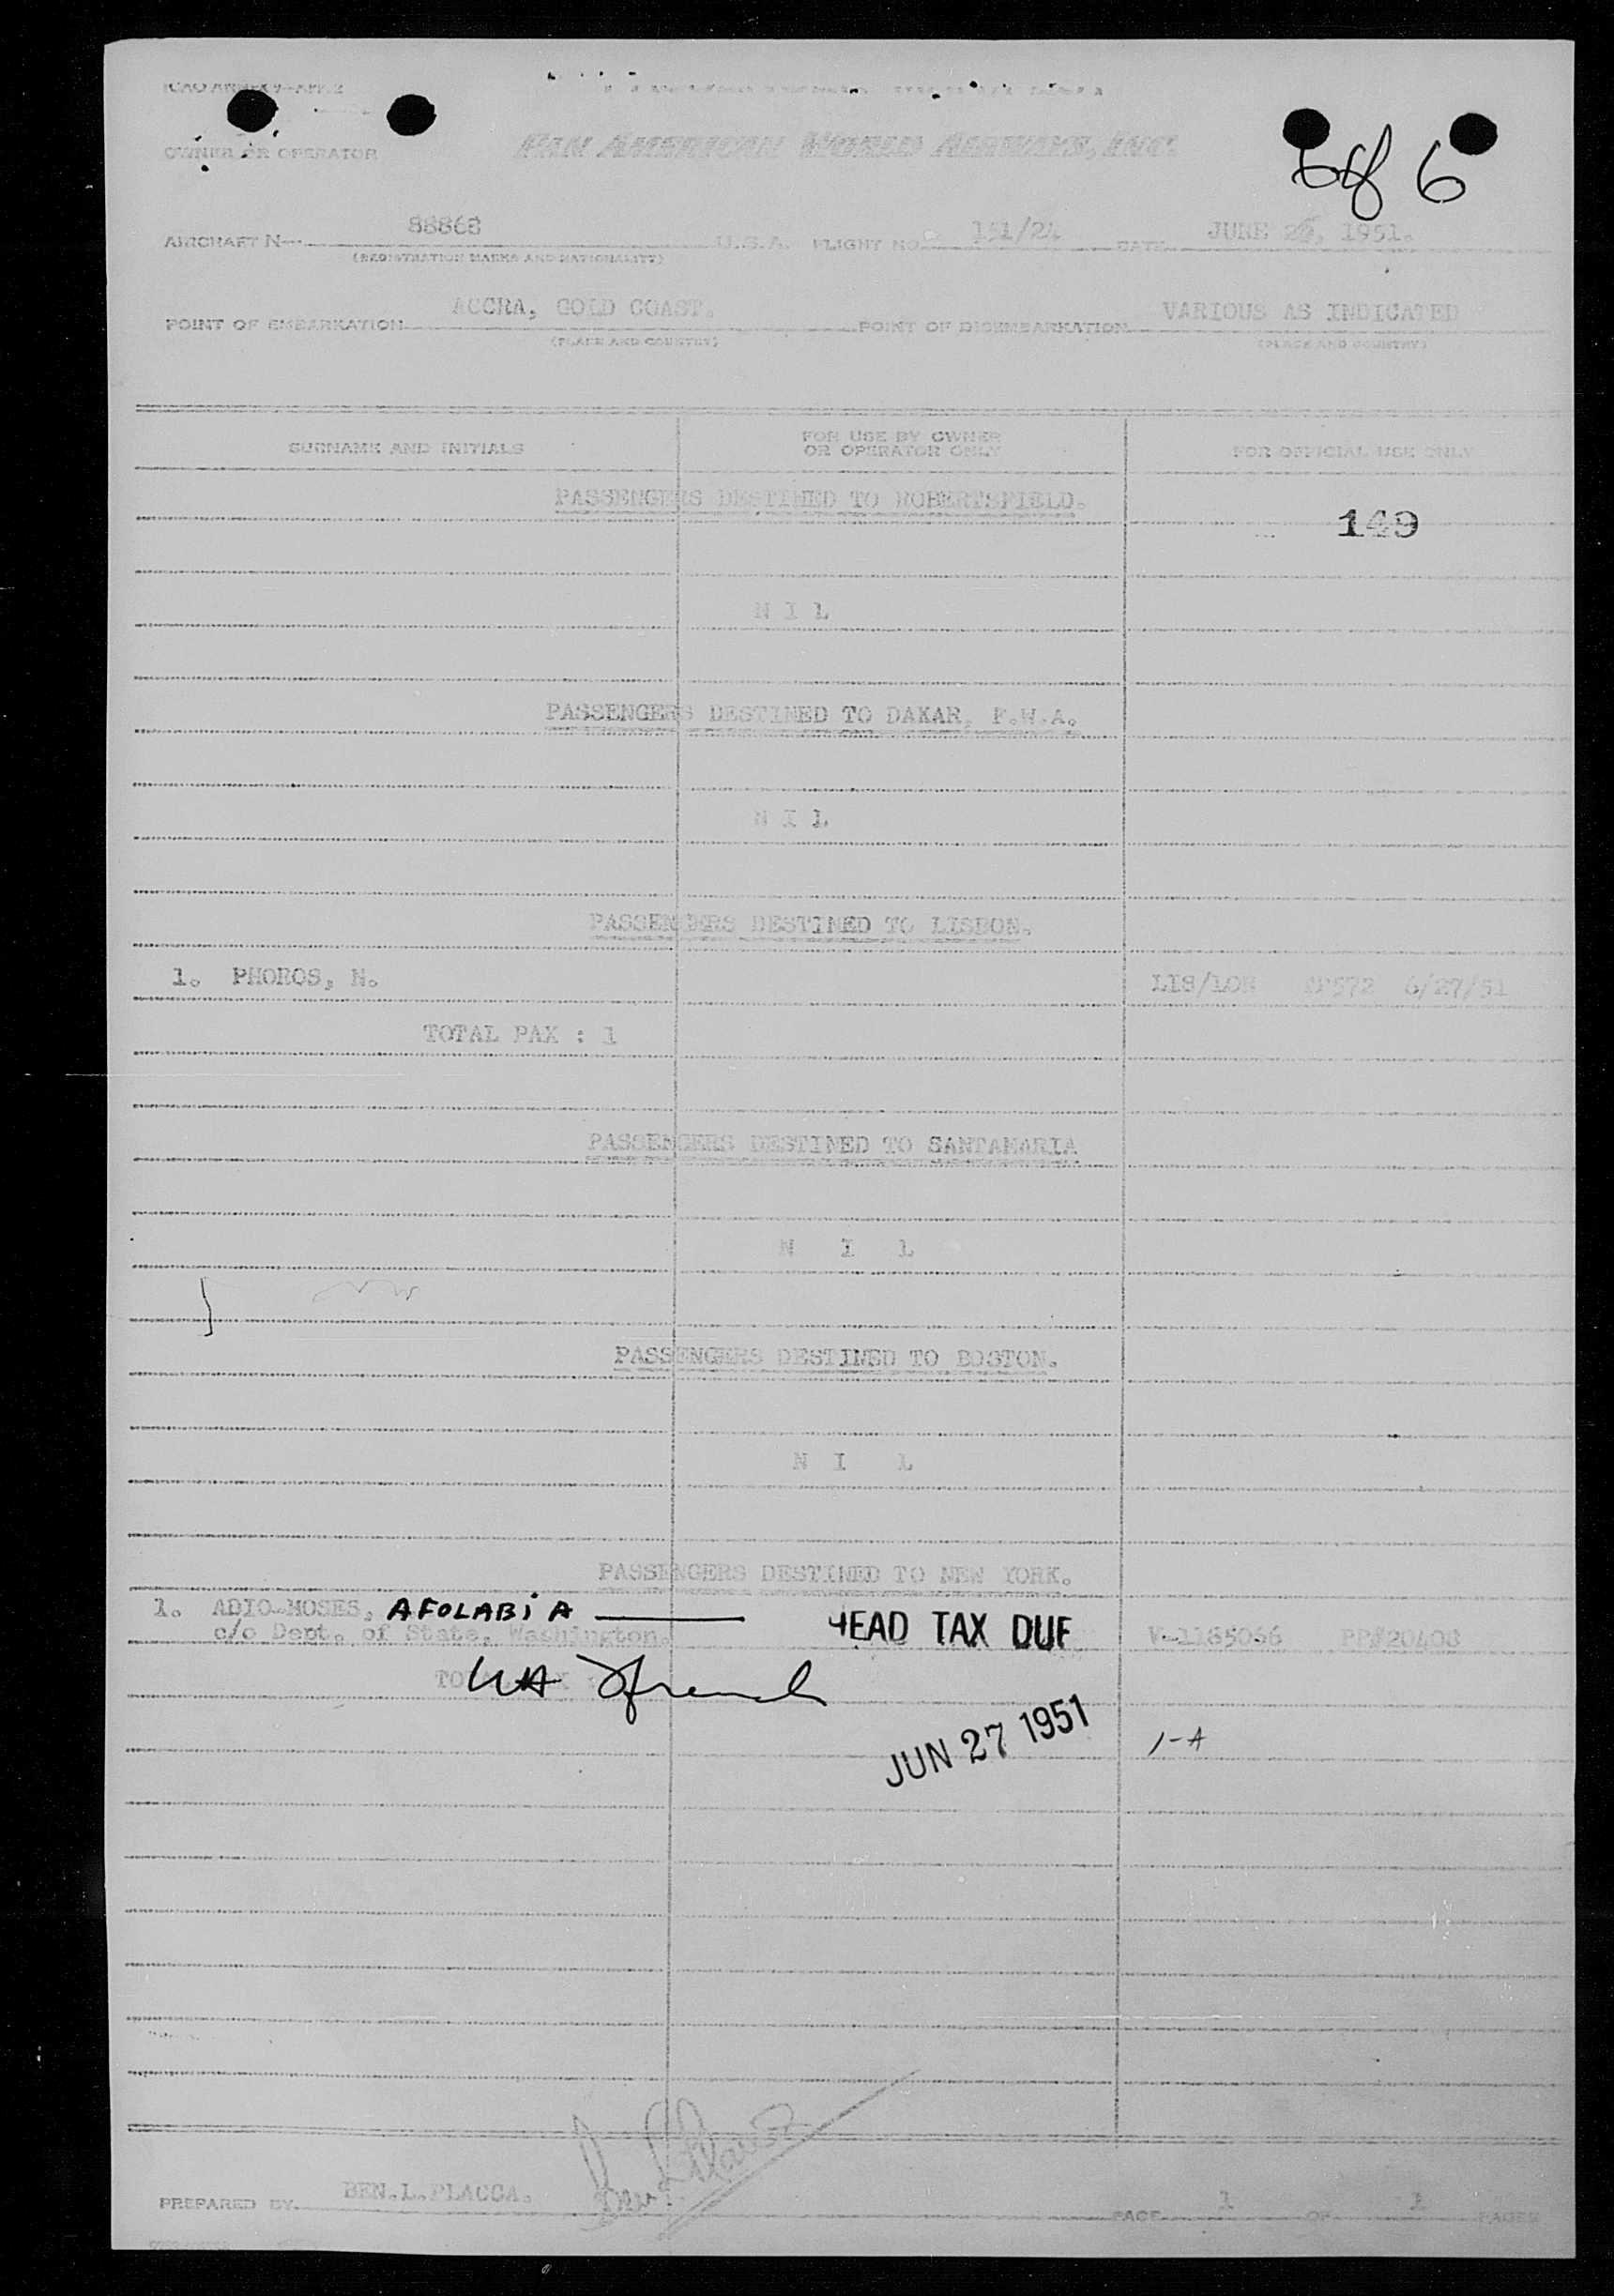 ICAO ANNEX 9-APP. 2
OWNER OR OPERATOR PAN AMERICAN WORLD AIRWAYS, INC.
of 6
AIRCRAFT N- 88868 U.S.A. FLIGHT NO. 151/24 DATE JUNE 26, 1951.
(REGISTRATION MARKS AND NATIONALITY)
POINT OF EMBARKATION ACCRA, GOLD COAST. POINT OF DISEMBARKATION VARIOUS AS INDICATED
(PLACE AND COUNTRY) (PLACE AND COUNTRY)
SURNAME AND INITIALS FOR USE BY OWNER OR OPERATOR ONLY FOR OFFICIAL USE ONLY
PASSENGERS DESTINED TO ROBERTSFIELD.
149
N I L
PASSENGERS DESTINED TO DAKAR, F.W.A.
N I L
PASSENGERS DESTINED TO LISBON.
1. PHOROS, N. LIS/LON AP572 6/27/51
TOTAL PAX : 1
PASSENGERS DESTINED TO SANTAMARIA
N I L
PASSENGERS DESTINED TO BOSTON.
N I L
PASSENGERS DESTINED TO NEW YORK.
1. ADIO-MOSES, AFOLABI A HEAD TAX DUE
c/o Dept. of State, Washington. V-1165066 PP#20408
JUN 27 1951
1-A
PREPARED BY BEN.L.PLACCA. PAGE 1 OF 1 PAGES